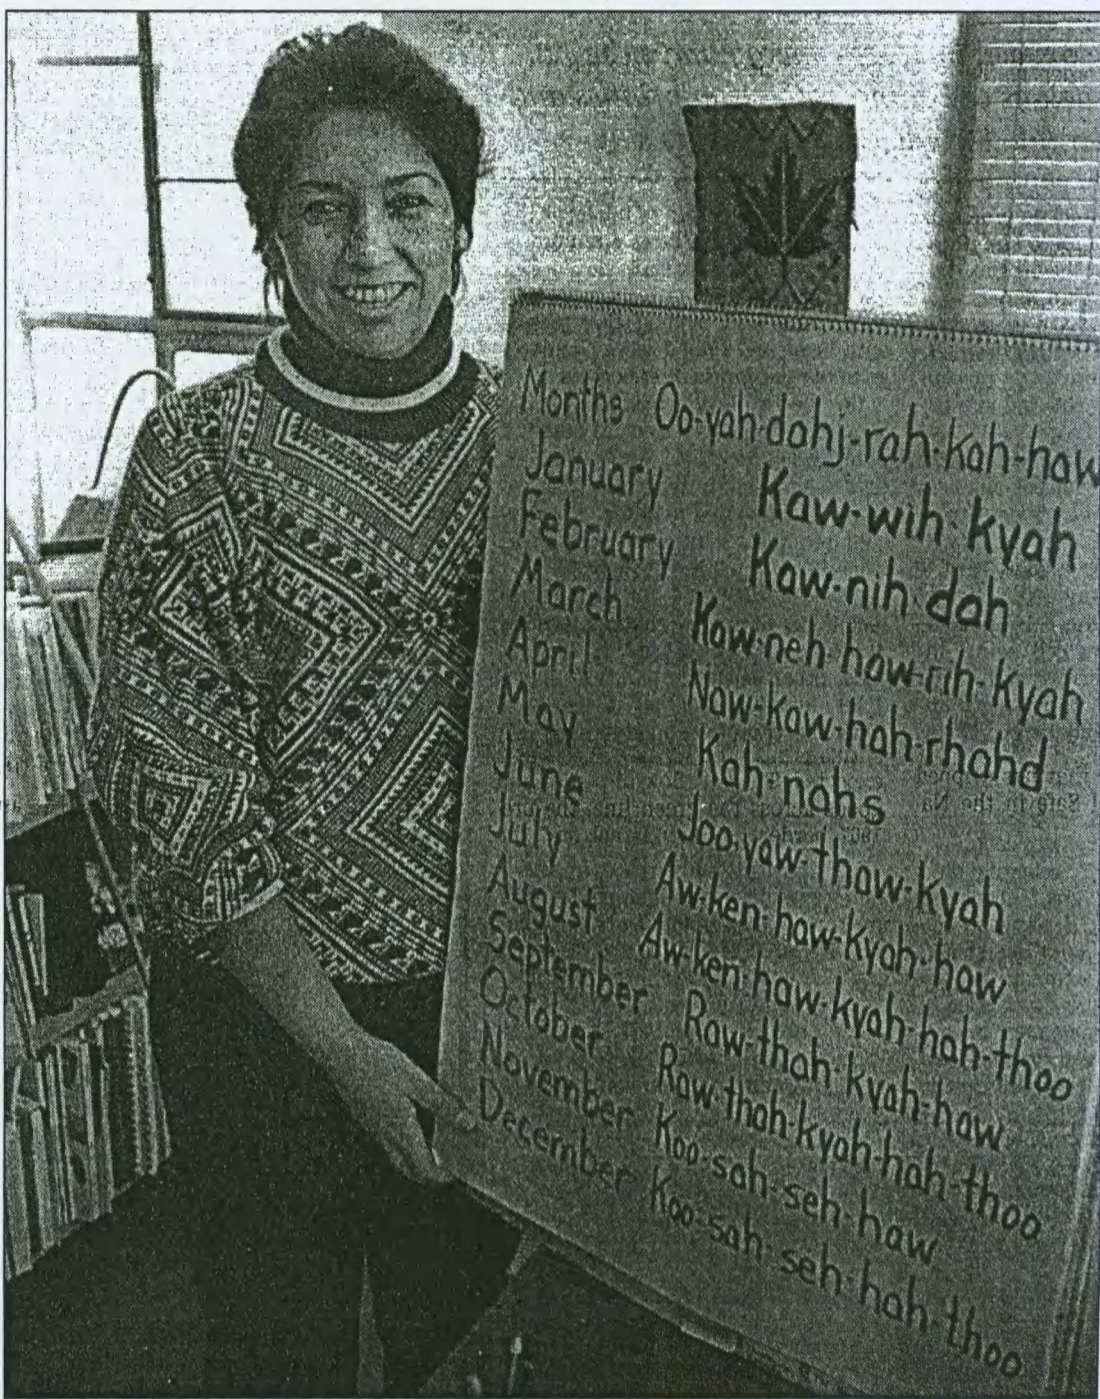 Months Oo-yah-dahj-rah-kah-haw
January Kaw-wih-kyah
February Kaw-nih-dah
March Kaw-neh-haw-rih-kyah
April Naw-kaw-hah-rhahd
May Kah-nahs
June Joo-yaw-thaw-kyah
July Aw-ken-haw-kyah-haw
August Aw-ken-haw-kyah-hah-thoo
September Raw-thah-kyah-haw
October Raw-thah-kyah-hah-thoo
November Koo-sah-seh-haw
December Koo-sah-seh-hah-thoo